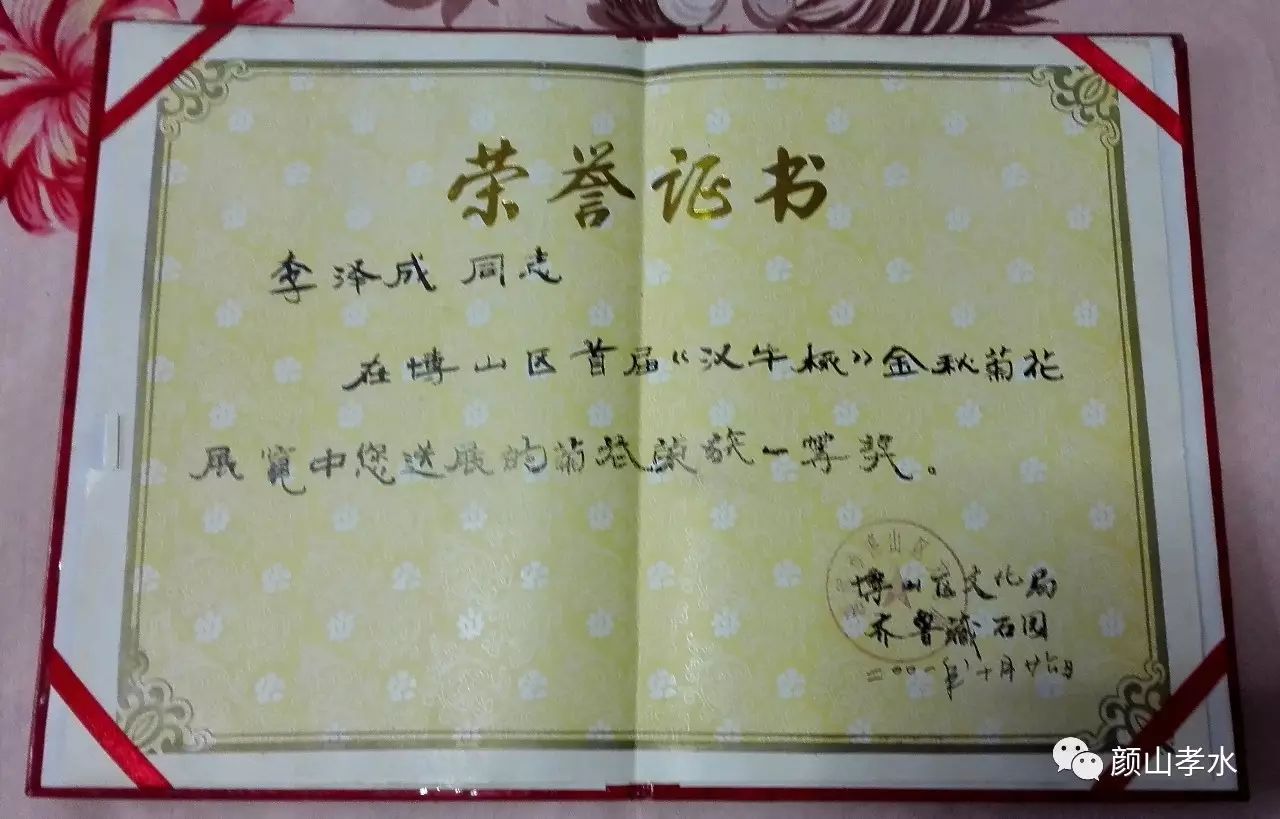 荣誉证书
李泽成 同志
在博山区首届“汉牛杯”金秋菊花
展览中您送展的菊花荣获一等奖。
博山区文化局
齐鲁藏石园
二〇〇一年十月廿六日
颜山孝水